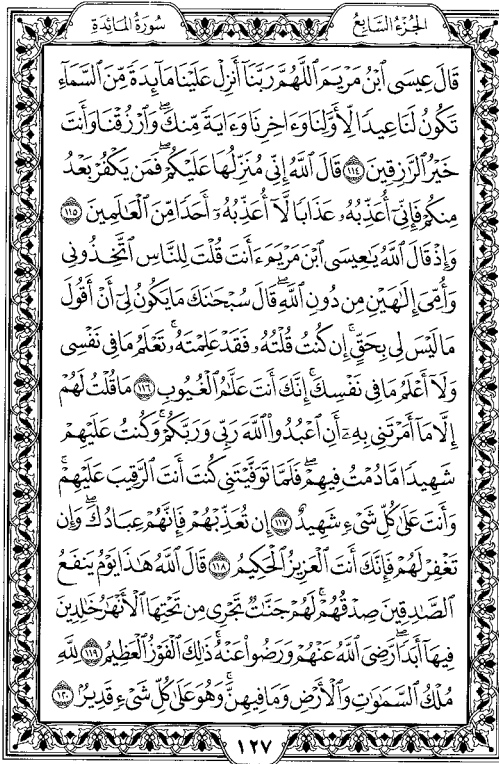 سُورَةُ المَائِدَةِ
الجُزءُ السَّابِعُ
قَالَ عِيسَى ٱبْنُ مَرْيَمَ ٱللَّهُمَّ رَبَّنَآ أَنزِلْ عَلَيْنَا مَآئِدَةً مِّنَ ٱلسَّمَآءِ
تَكُونُ لَنَا عِيدًا لِّأَوَّلِنَا وَءَاخِرِنَا وَءَايَةً مِّنكَۖ وَٱرْزُقْنَا وَأَنتَ
خَيْرُ ٱلرَّٰزِقِينَ ١١٤ قَالَ ٱللَّهُ إِنِّي مُنَزِّلُهَا عَلَيْكُمْۖ فَمَن يَكْفُرْ بَعْدُ
مِنكُمْ فَإِنِّيٓ أُعَذِّبُهُۥ عَذَابًا لَّآ أُعَذِّبُهُۥٓ أَحَدًا مِّنَ ٱلْعَٰلَمِينَ ١١٥
وَإِذْ قَالَ ٱللَّهُ يَٰعِيسَى ٱبْنَ مَرْيَمَ ءَأَنتَ قُلْتَ لِلنَّاسِ ٱتَّخِذُونِي
وَأُمِّيَ إِلَٰهَيْنِ مِن دُونِ ٱللَّهِۖ قَالَ سُبْحَٰنَكَ مَا يَكُونُ لِيٓ أَنْ أَقُولَ
مَا لَيْسَ لِي بِحَقٍّۚ إِن كُنتُ قُلْتُهُۥ فَقَدْ عَلِمْتَهُۥۚ تَعْلَمُ مَا فِي نَفْسِي
وَلَآ أَعْلَمُ مَا فِي نَفْسِكَۚ إِنَّكَ أَنتَ عَلَّٰمُ ٱلْغُيُوبِ ١١٦ مَا قُلْتُ لَهُمْ
إِلَّا مَآ أَمَرْتَنِي بِهِۦٓ أَنِ ٱعْبُدُوا۟ ٱللَّهَ رَبِّي وَرَبَّكُمْۚ وَكُنتُ عَلَيْهِمْ
شَهِيدًا مَّا دُمْتُ فِيهِمْۖ فَلَمَّا تَوَفَّيْتَنِي كُنتَ أَنتَ ٱلرَّقِيبَ عَلَيْهِمْۚ
وَأَنتَ عَلَىٰ كُلِّ شَيْءٍ شَهِيدٌ ١١٧ إِن تُعَذِّبْهُمْ فَإِنَّهُمْ عِبَادُكَۖ وَإِن
تَغْفِرْ لَهُمْ فَإِنَّكَ أَنتَ ٱلْعَزِيزُ ٱلْحَكِيمُ ١١٨ قَالَ ٱللَّهُ هَٰذَا يَوْمُ يَنفَعُ
ٱلصَّٰدِقِينَ صِدْقُهُمْۚ لَهُمْ جَنَّٰتٌ تَجْرِي مِن تَحْتِهَا ٱلْأَنْهَٰرُ خَٰلِدِينَ
فِيهَآ أَبَدًاۖ رَّضِيَ ٱللَّهُ عَنْهُمْ وَرَضُوا۟ عَنْهُۚ ذَٰلِكَ ٱلْفَوْزُ ٱلْعَظِيمُ ١١٩ لِلَّهِ
مُلْكُ ٱلسَّمَٰوَٰتِ وَٱلْأَرْضِ وَمَا فِيهِنَّۚ وَهُوَ عَلَىٰ كُلِّ شَيْءٍ قَدِيرٌۢ ١٢٠
١٢٧